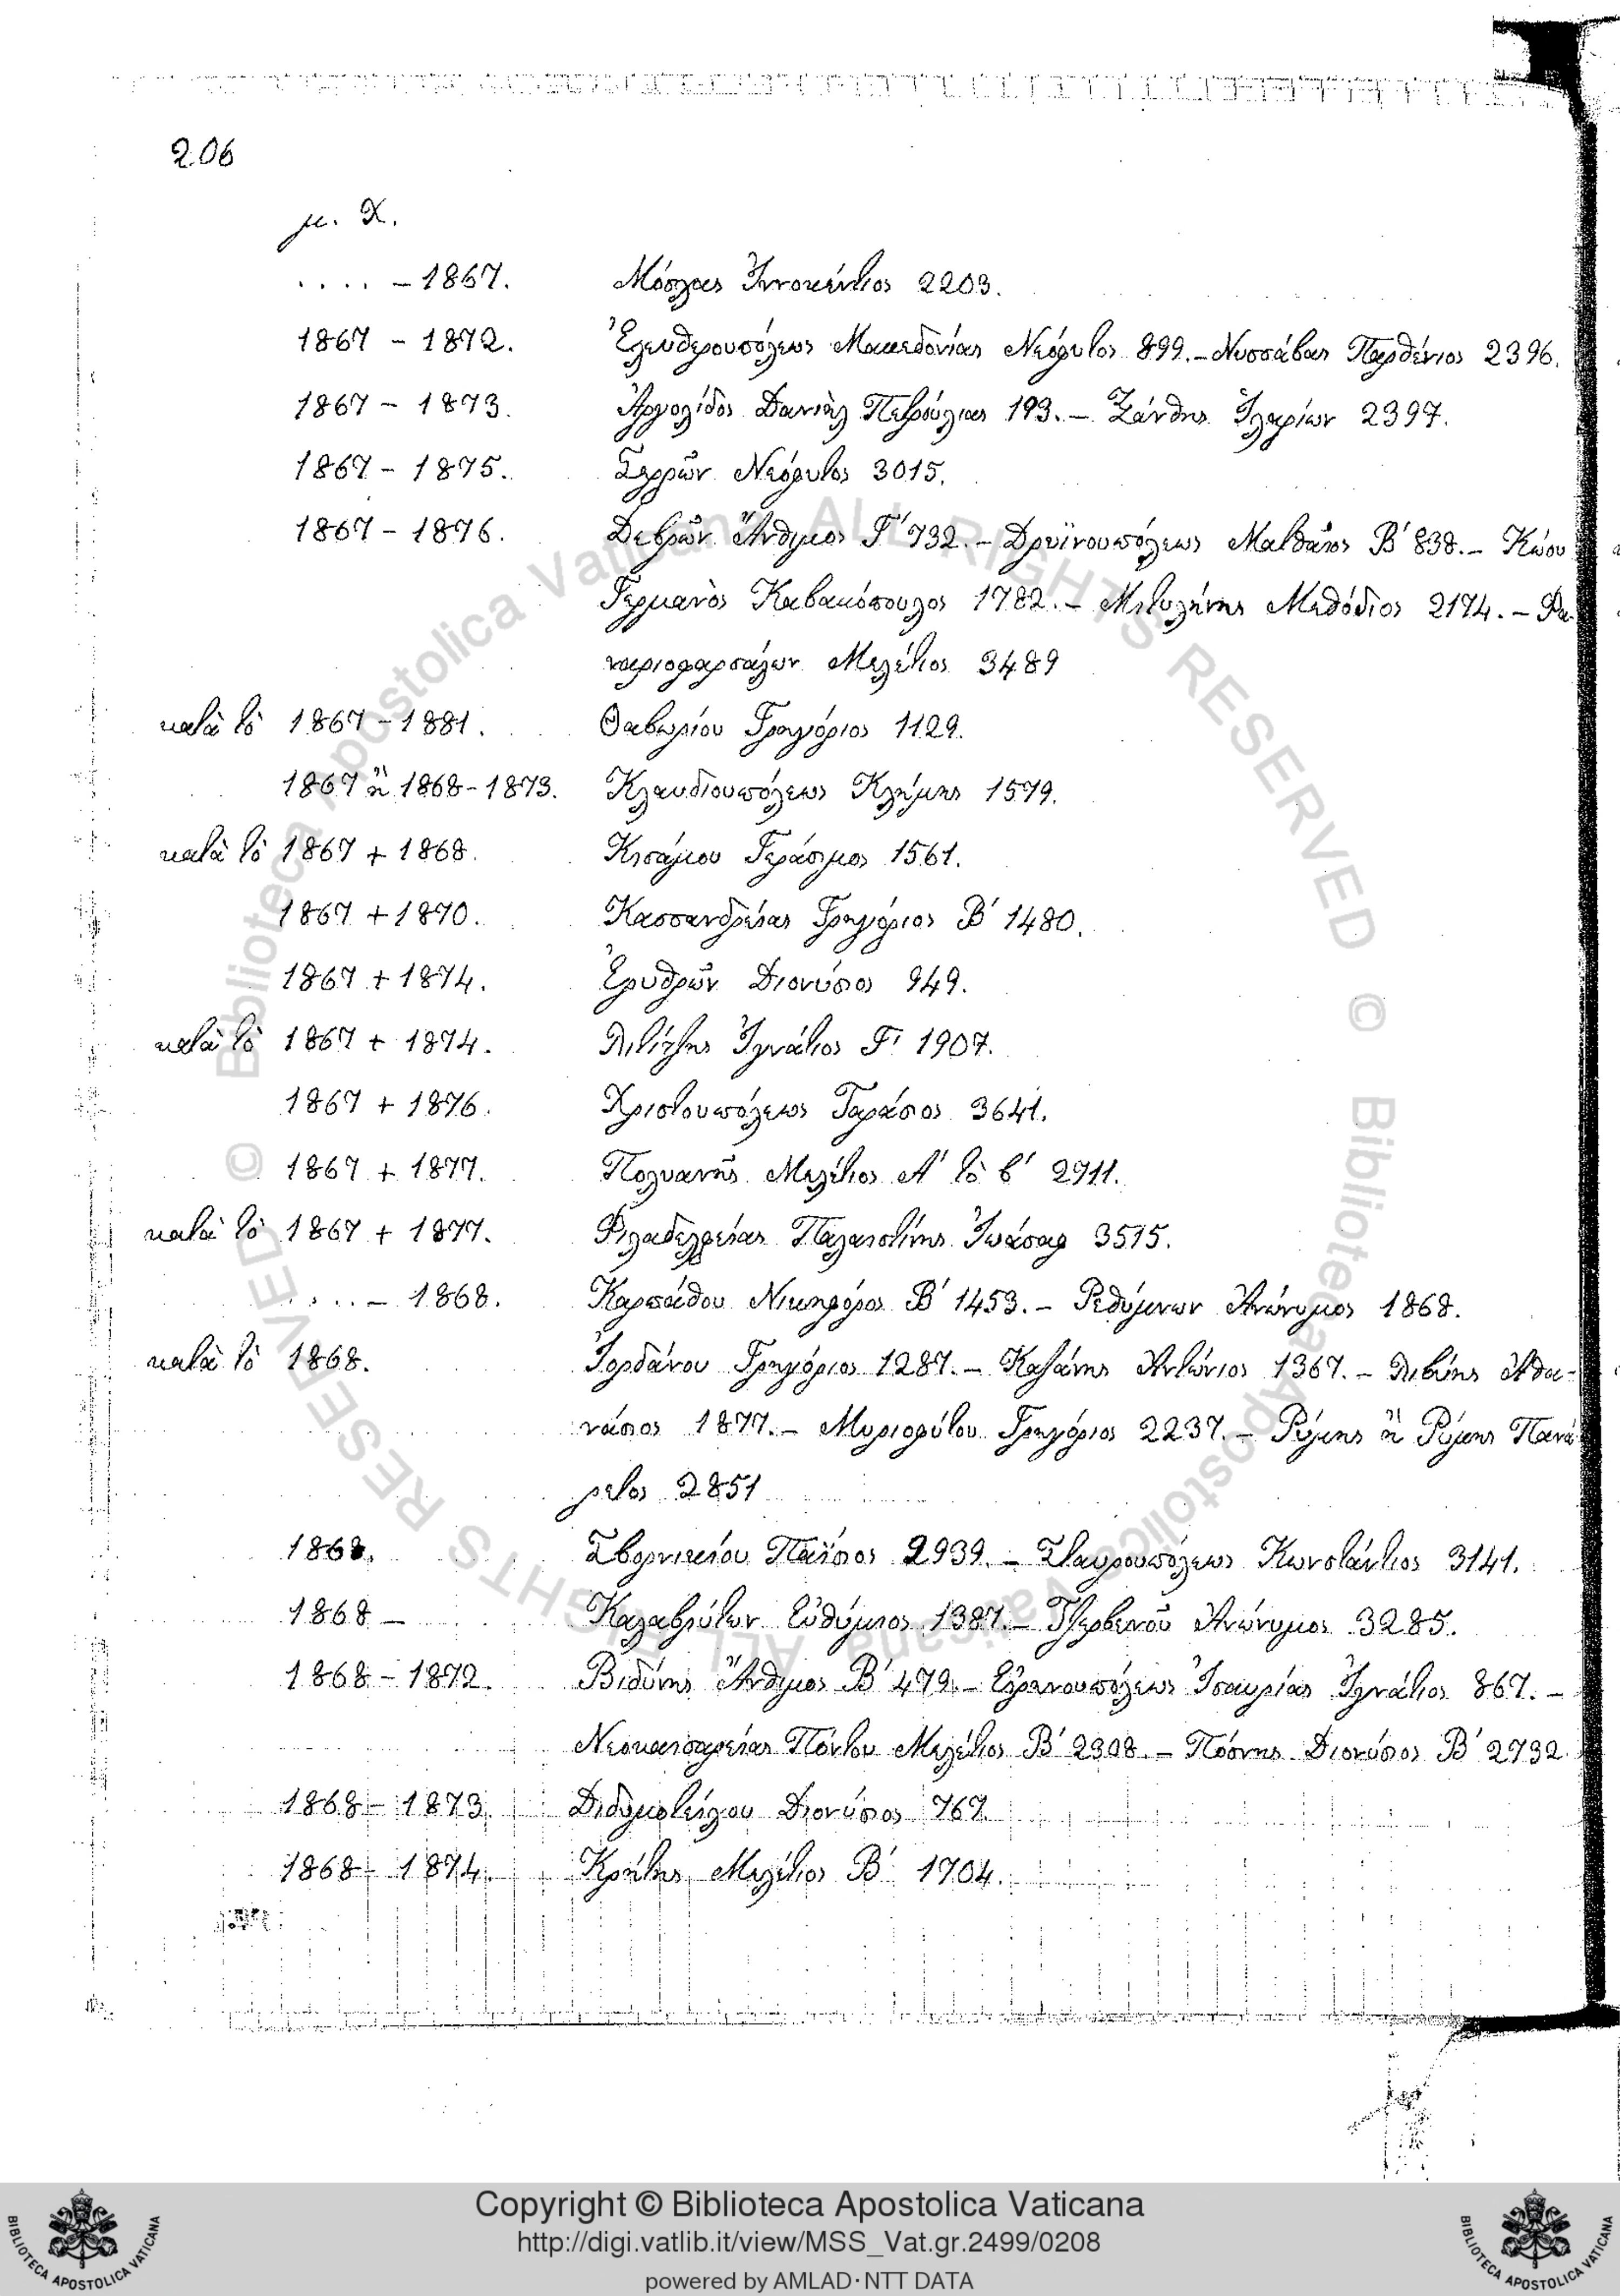 206
μ. Χ.
.... – 1867. Μόσχας Ἰννοκέντιος 2203.
1867 – 1872. Ἐλευθερουπόλεως Μακεδονίας Νεόφυτος 899. – Νυσσάβας Παρθένιος 2396.
1867 – 1873. Ἀργολίδος Δανιὴλ Πετρούλιας 193. – Ξάνθης Ἱλαρίων 2397.
1867 – 1875. Σερρῶν Νεόφυτος 3015.
1867 – 1876. Δεβρῶν Ἄνθιμος Γ΄ 732. – Δρυϊνουπόλεως Ματθαῖος Β΄ 838. – Κώου
Γερμανὸς Καβακόπουλος 1782. – Μιτυλήνης Μεθόδιος 2174. – Φα-
ναριοφαρσάλων Μελέτιος 3489
κατὰ τὸ 1867 – 1881. Θαβωρίου Γρηγόριος 1129.
1867 ἢ 1868 – 1873. Κλαυδιουπόλεως Κλήμης 1579.
κατὰ τὸ 1867 + 1868. Κισάμου Γεράσιμος 1561.
1867 + 1870. Κασσανδρείας Γρηγόριος Β΄ 1480.
1867 + 1874. Ἐρυθρῶν Διονύσιος 949.
κατὰ τὸ 1867 + 1874. Λιτίτζης Ἰγνάτιος Γ΄ 1907.
1867 + 1876. Χριστουπόλεως Ταράσιος 3641.
1867 + 1877. Πολυανῆς Μελέτιος Α΄ τὸ β΄ 2911.
κατὰ τὸ 1867 + 1877. Φιλαδελφείας Παλαιστίνης Ἰωάσαφ 3515.
.... – 1868. Καρπάθου Νικηφόρος Β΄ 1453. – Ρεθύμνων Ἀνώνυμος 1868.
κατὰ τὸ 1868. Ἰορδάνου Γρηγόριος 1287. – Καζάνης Ἀντώνιος 1367. – Λιβύης Ἀθα-
νάσιος 1877. – Μυριοφύτου Γρηγόριος 2237. – Ρώμης ἢ Ρώμης Πανά
ρετος 2851
1868. Σβορνικίου Παΐσιος 2939. – Σταυρουπόλεως Κωνστάντιος 3141.
1868 – Καλαβρύτων Εὐθύμιος 1387. – Τζερβενοῦ Ἀνώνυμος 3285.
1868 – 1872. Βιδύνης Ἄνθιμος Β΄ 479. – Εἰρηνουπόλεως Ἰσαυρίας Ἰγνάτιος 867. –
Νεοκαισαρείας Πόντου Μελέτιος Β΄ 2308. – Πόσνης Διονύσιος Β΄ 2732
1868 – 1873. Διδυμοτείχου Διονύσιος 767.
1868 – 1874. Κρήτης Μελέτιος Β΄ 1704.
Copyright © Biblioteca Apostolica Vaticana
http://digi.vatlib.it/view/MSS_Vat.gr.2499/0208
powered by AMLAD·NTT DATA